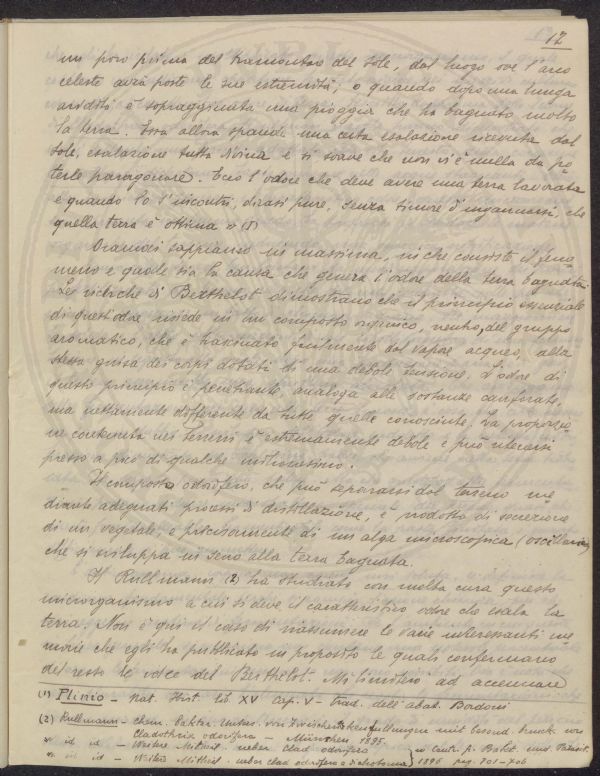 12
un poco prima del tramontar del sole, dal luogo ove l'arco
celeste avrà poste le sue estremità; o quando dopo una lunga
aridità è sopraggiunta una pioggia che ha bagnato molto
la terra. Essa allora spande una certa esalazione ricevuta dal
sole, esalazione tutta divina e si soave che non vi è nulla da po=
terle paragonare. Ecco l'odore che deve avere una terra lavorata
e quando lo s'incontri, dicasi pure, senza timore d'ingannarsi, che
quella terra è ottima » (1)
Oramai sappiamo in massima, in che consiste il feno=
meno e quale sia la causa che genera l'odore della terra bagnata.
Le ricerche di Berthelot dimostrano che il principio essenziale
di quest'odore risiede in un composto organico, neutro, del gruppo
aromatico, che è trascinato facilmente dal vapore acqueo, alla
stessa guisa dei corpi dotati di una debole tensione. L'odore di
questo principio è penetrante, analoga alle sostanze canforate,
ma nettamente differente da tutte quelle conosciute. La proporzio=
ne contenuta nei terreni è estremamente debole e può ritenersi
presso a poco di qualche milionesimo.
Il composto odorifero, che può separarsi dal terreno me
diante adeguati processi di distillazione, è prodotto di secrezione
di un vegetale, e precisamente di un alga microscopica (oscillaria)
che si sviluppa in seno alla terra bagnata.
Il Rullmann (2) ha studiato con molta cura questo
microrganismo a cui si deve il caratteristico odore che esala la
terra. Non è qui il caso di riassumere le varie interessanti me
morie che egli ha pubblicato in proposito le quali confermano
del resto le vedute del Berthelot. Mi limiterò ad accennare
(1) Plinio - Nat. Hist. lib XV Cap. V - trad. dell'abat. Bordoni
(2) Rullmann - chem. bakter. Unters. von Zwischendeckenfüllungen mit besond. von
Cladothrix odorifera - München 1895.
" id id - Weitere Mitteil. ueber Clad. odorifera
" id id - Weitere Mitteil. ueber clad. odorifera
in Centr. f. Bakt. und Parasit.
1896 pag. 701-706